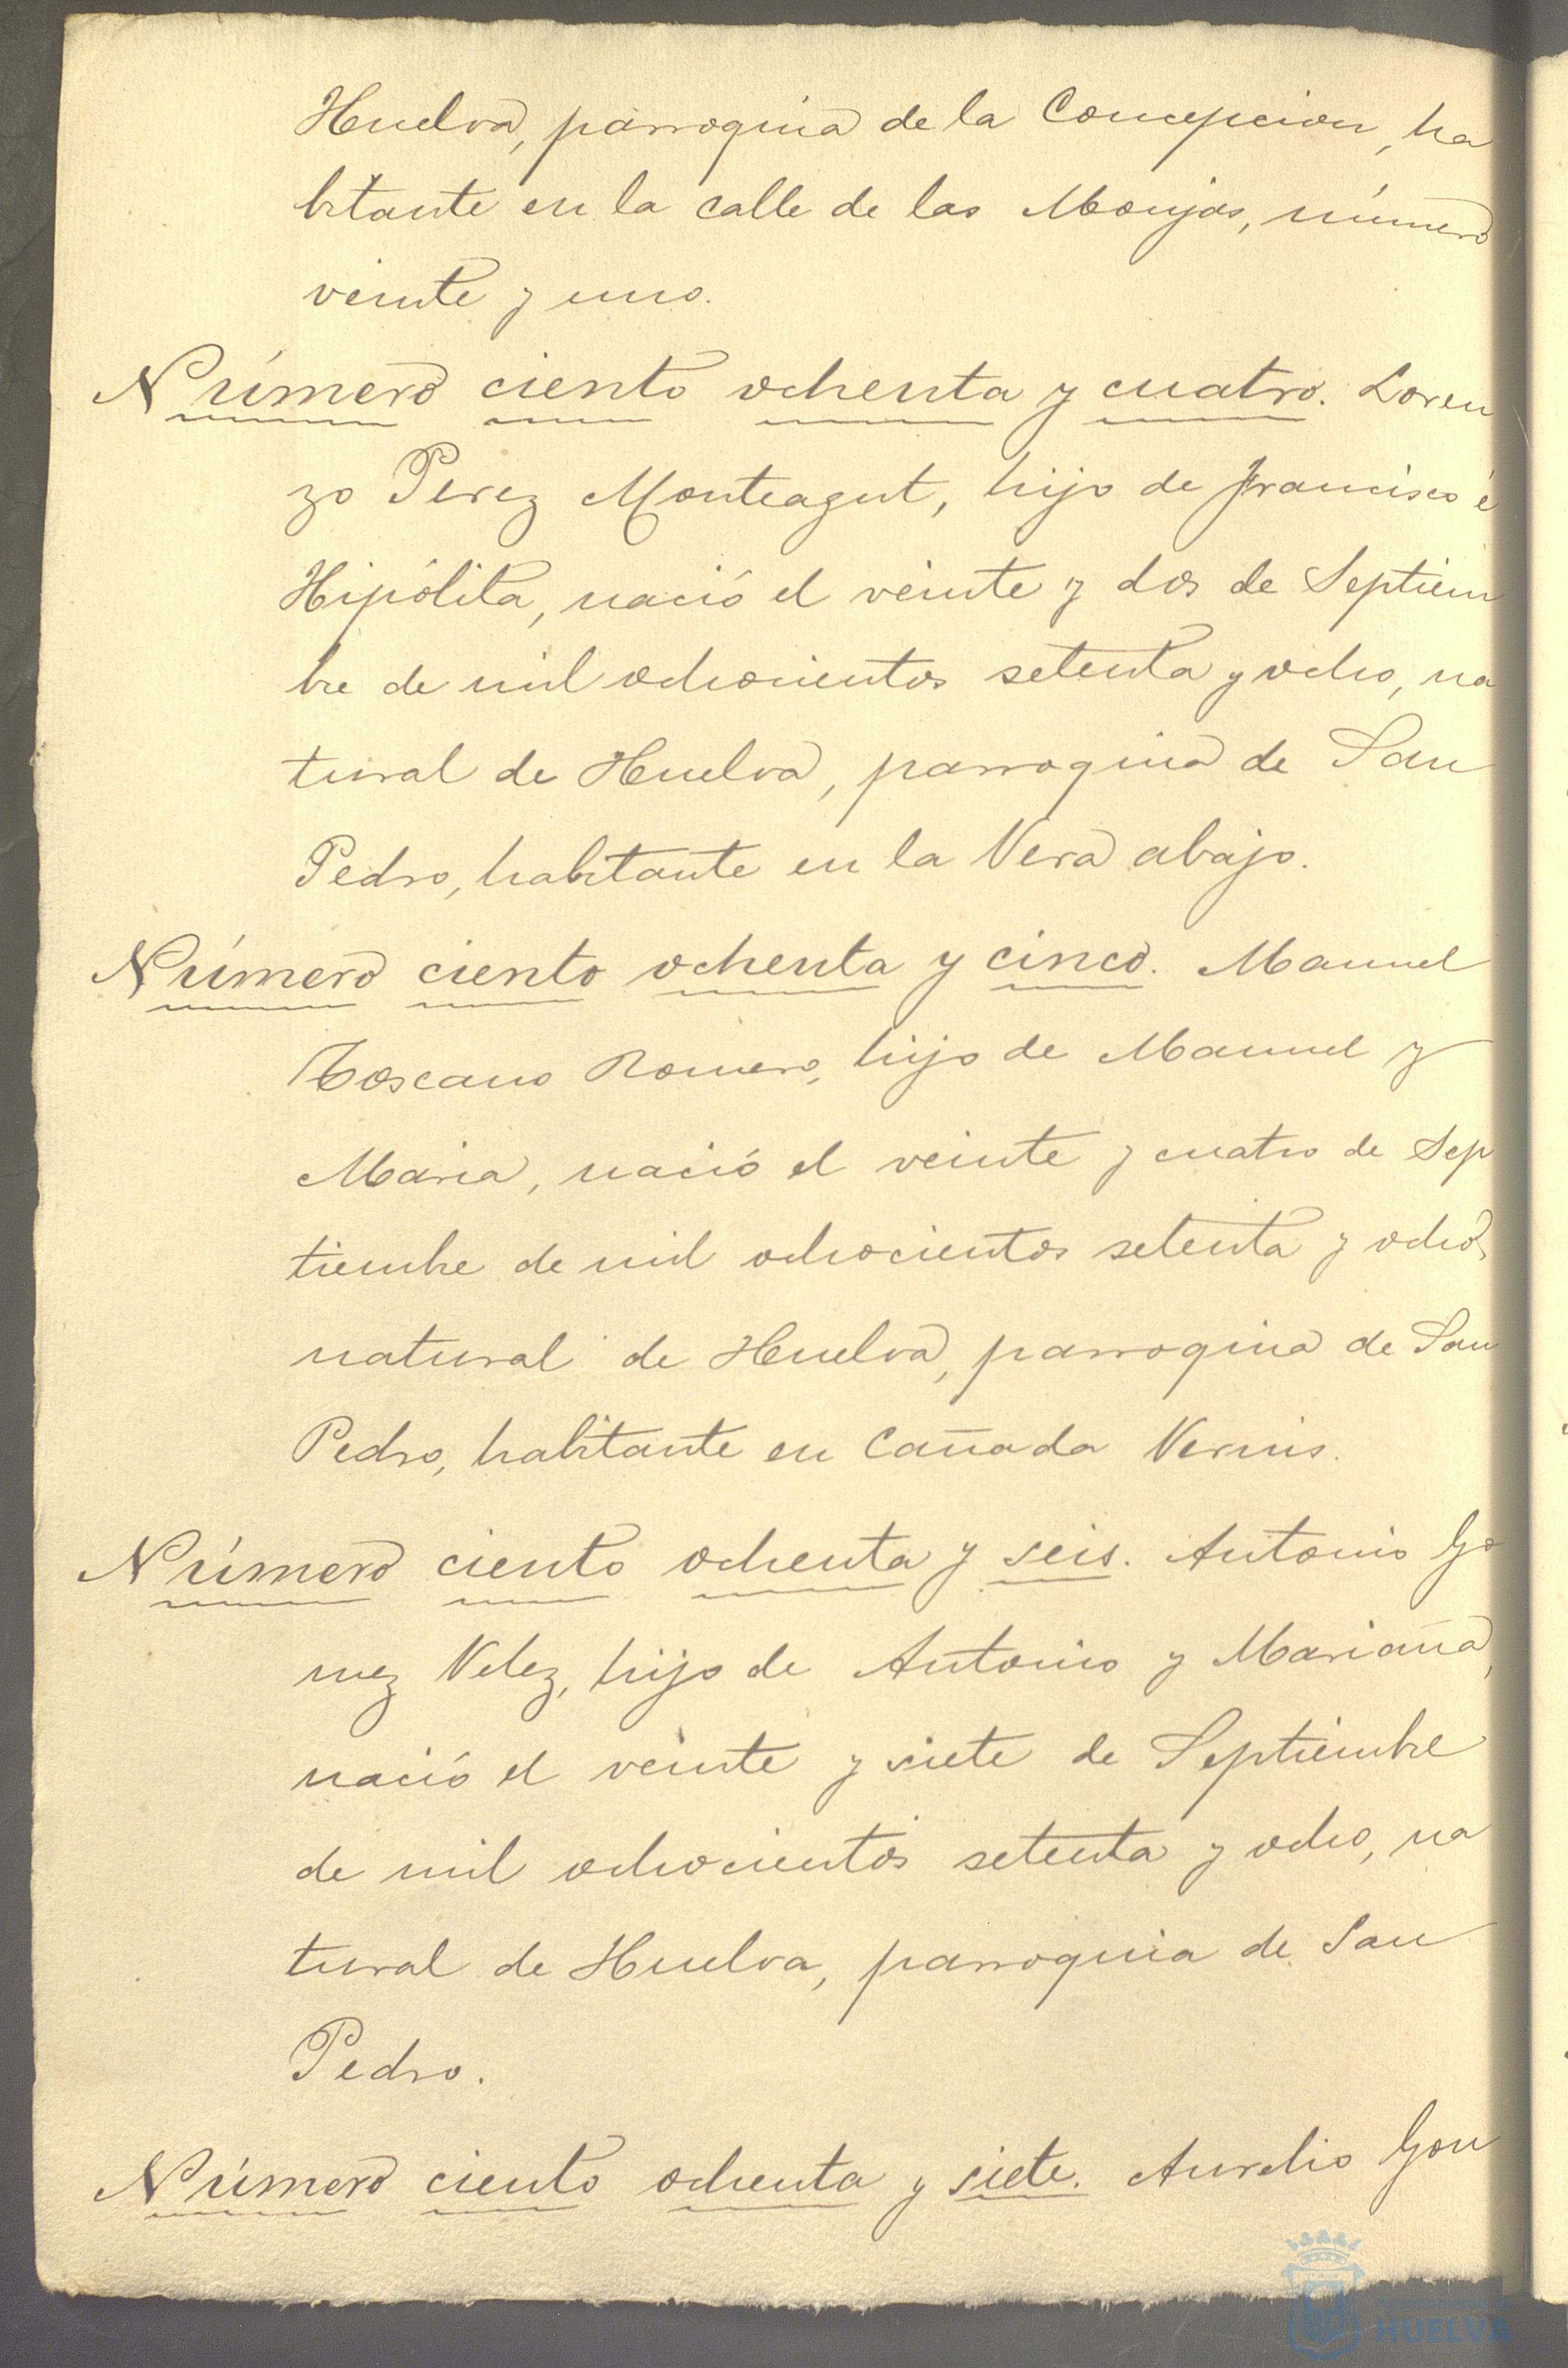 Huelva, parroquia de la Concepcion, ha
bitante en la calle de las Monjas, número
veinte y uno.
Número ciento ochenta y cuatro. Loren
zo Perez Monteagut, hijo de Francisco é
Hipólita, nació el veinte y dos de Septiem
bre de mil ochocientos setenta y ocho, na
tural de Huelva, parroquia de San
Pedro, habitante en la Vera abajo.
Número ciento ochenta y cinco. Manuel
Toscano Romero, hijo de Manuel y
Maria, nació el veinte y cuatro de Sep
tiembre de mil ochocientos setenta y ocho,
natural de Huelva, parroquia de San
Pedro, habitante en Cañada
Número ciento ochenta y seis. Antonio Go
mez Velez, hijo de Antonio y Mariana,
nació el veinte y siete de Septiembre
de mil ochocientos setenta y ocho, na
tural de Huelva, parroquia de San
Pedro.
Número ciento ochenta y siete. Aurelio Gon
HUELVA